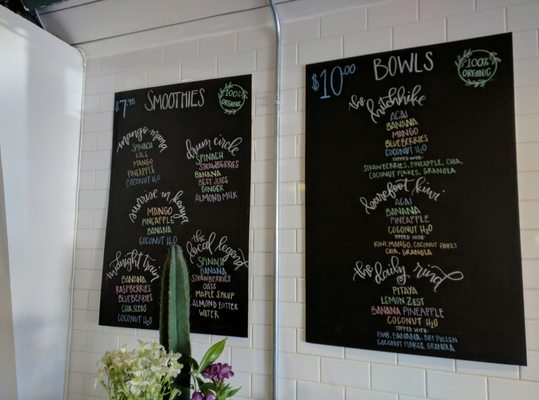 $7.95 SMOOTHIES 100% ORGANIC
mango mana
SPINACH
KALE
MANGO
PINEAPPLE
COCONUT H2O
sunrise in kenya
MANGO
PINEAPPLE
BANANA
COCONUT H2O
midnight train
BANANA
RASPBERRIES
BLUEBERRIES
CHIA SEEDS
COCONUT H2O
drum circle
SPINACH
STRAWBERRIES
BANANA
BEET JUICE
GINGER
ALMOND MILK
the local legend
SPINACH
BANANA
STRAWBERRIES
OATS
MAPLE SYRUP
ALMOND BUTTER
WATER
$10.00 BOWLS 100% ORGANIC
the hitchhike
ACAI
BANANA
MANGO
BLUEBERRIES
COCONUT H2O
TOPPED WITH
STRAWBERRIES, PINEAPPLE, CHIA,
COCONUT FLAKES, GRANOLA
the barefoot kiwi
ACAI
BANANA
PINEAPPLE
COCONUT H2O
TOPPED WITH
KIWI, MANGO, COCONUT FLAKES
CHIA, GRANOLA
the daily rind
PITAYA
LEMON ZEST
BANANA PINEAPPLE
COCONUT H2O
TOPPED WITH
KIWI, BANANA, BEE POLLEN
COCONUT FLAKES, GRANOLA